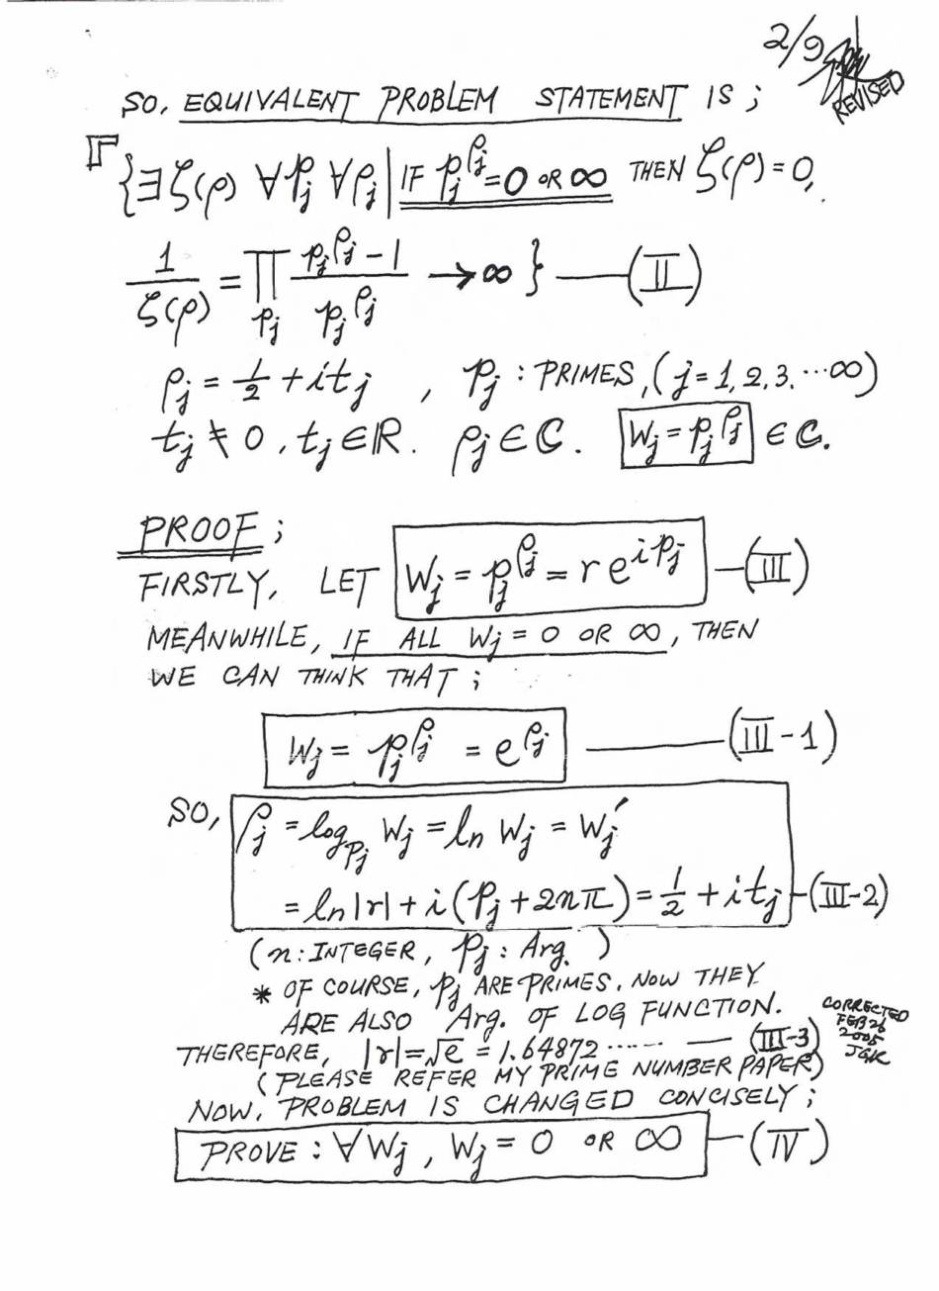 2/9
REVISED
SO, EQUIVALENT PROBLEM STATEMENT IS ;
「{∃ζ(ρ) ∀p_j ∀ρ_j | IF p_j^{ρ_j} = 0 OR ∞ THEN ζ(ρ) = 0,
1/ζ(ρ) = ∏_{p_j} (p_j^{ρ_j} - 1)/p_j^{ρ_j} → ∞ } —— (II)
ρ_j = 1/2 + it_j , p_j : PRIMES, (j = 1, 2, 3, ⋯ ∞)
t_j ≠ 0 , t_j ∈ ℝ. ρ_j ∈ ℂ. W_j = p_j^{ρ_j} ∈ ℂ.
PROOF ;
FIRSTLY, LET W_j = p_j^{ρ_j} = r e^{i p_j} — (III)
MEANWHILE, IF ALL W_j = 0 OR ∞, THEN
WE CAN THINK THAT ;
W_j = p_j^{ρ_j} = e^{ρ_j} —— (III-1)
SO, ρ_j = log_{p_j} W_j = ln W_j = W_j′
= ln|r| + i (p_j + 2nπ) = 1/2 + it_j — (III-2)
(n : INTEGER, p_j : Arg. )
* OF COURSE, p_j ARE PRIMES. NOW THEY
ARE ALSO Arg. OF LOG FUNCTION.
CORRECTED
FEB 26
2005
JGK
THEREFORE, |r| = √e = 1.64872 ⋯⋯ — (III-3)
(PLEASE REFER MY PRIME NUMBER PAPER)
NOW, PROBLEM IS CHANGED CONCISELY ;
PROVE : ∀W_j , W_j = 0 OR ∞ — (IV)